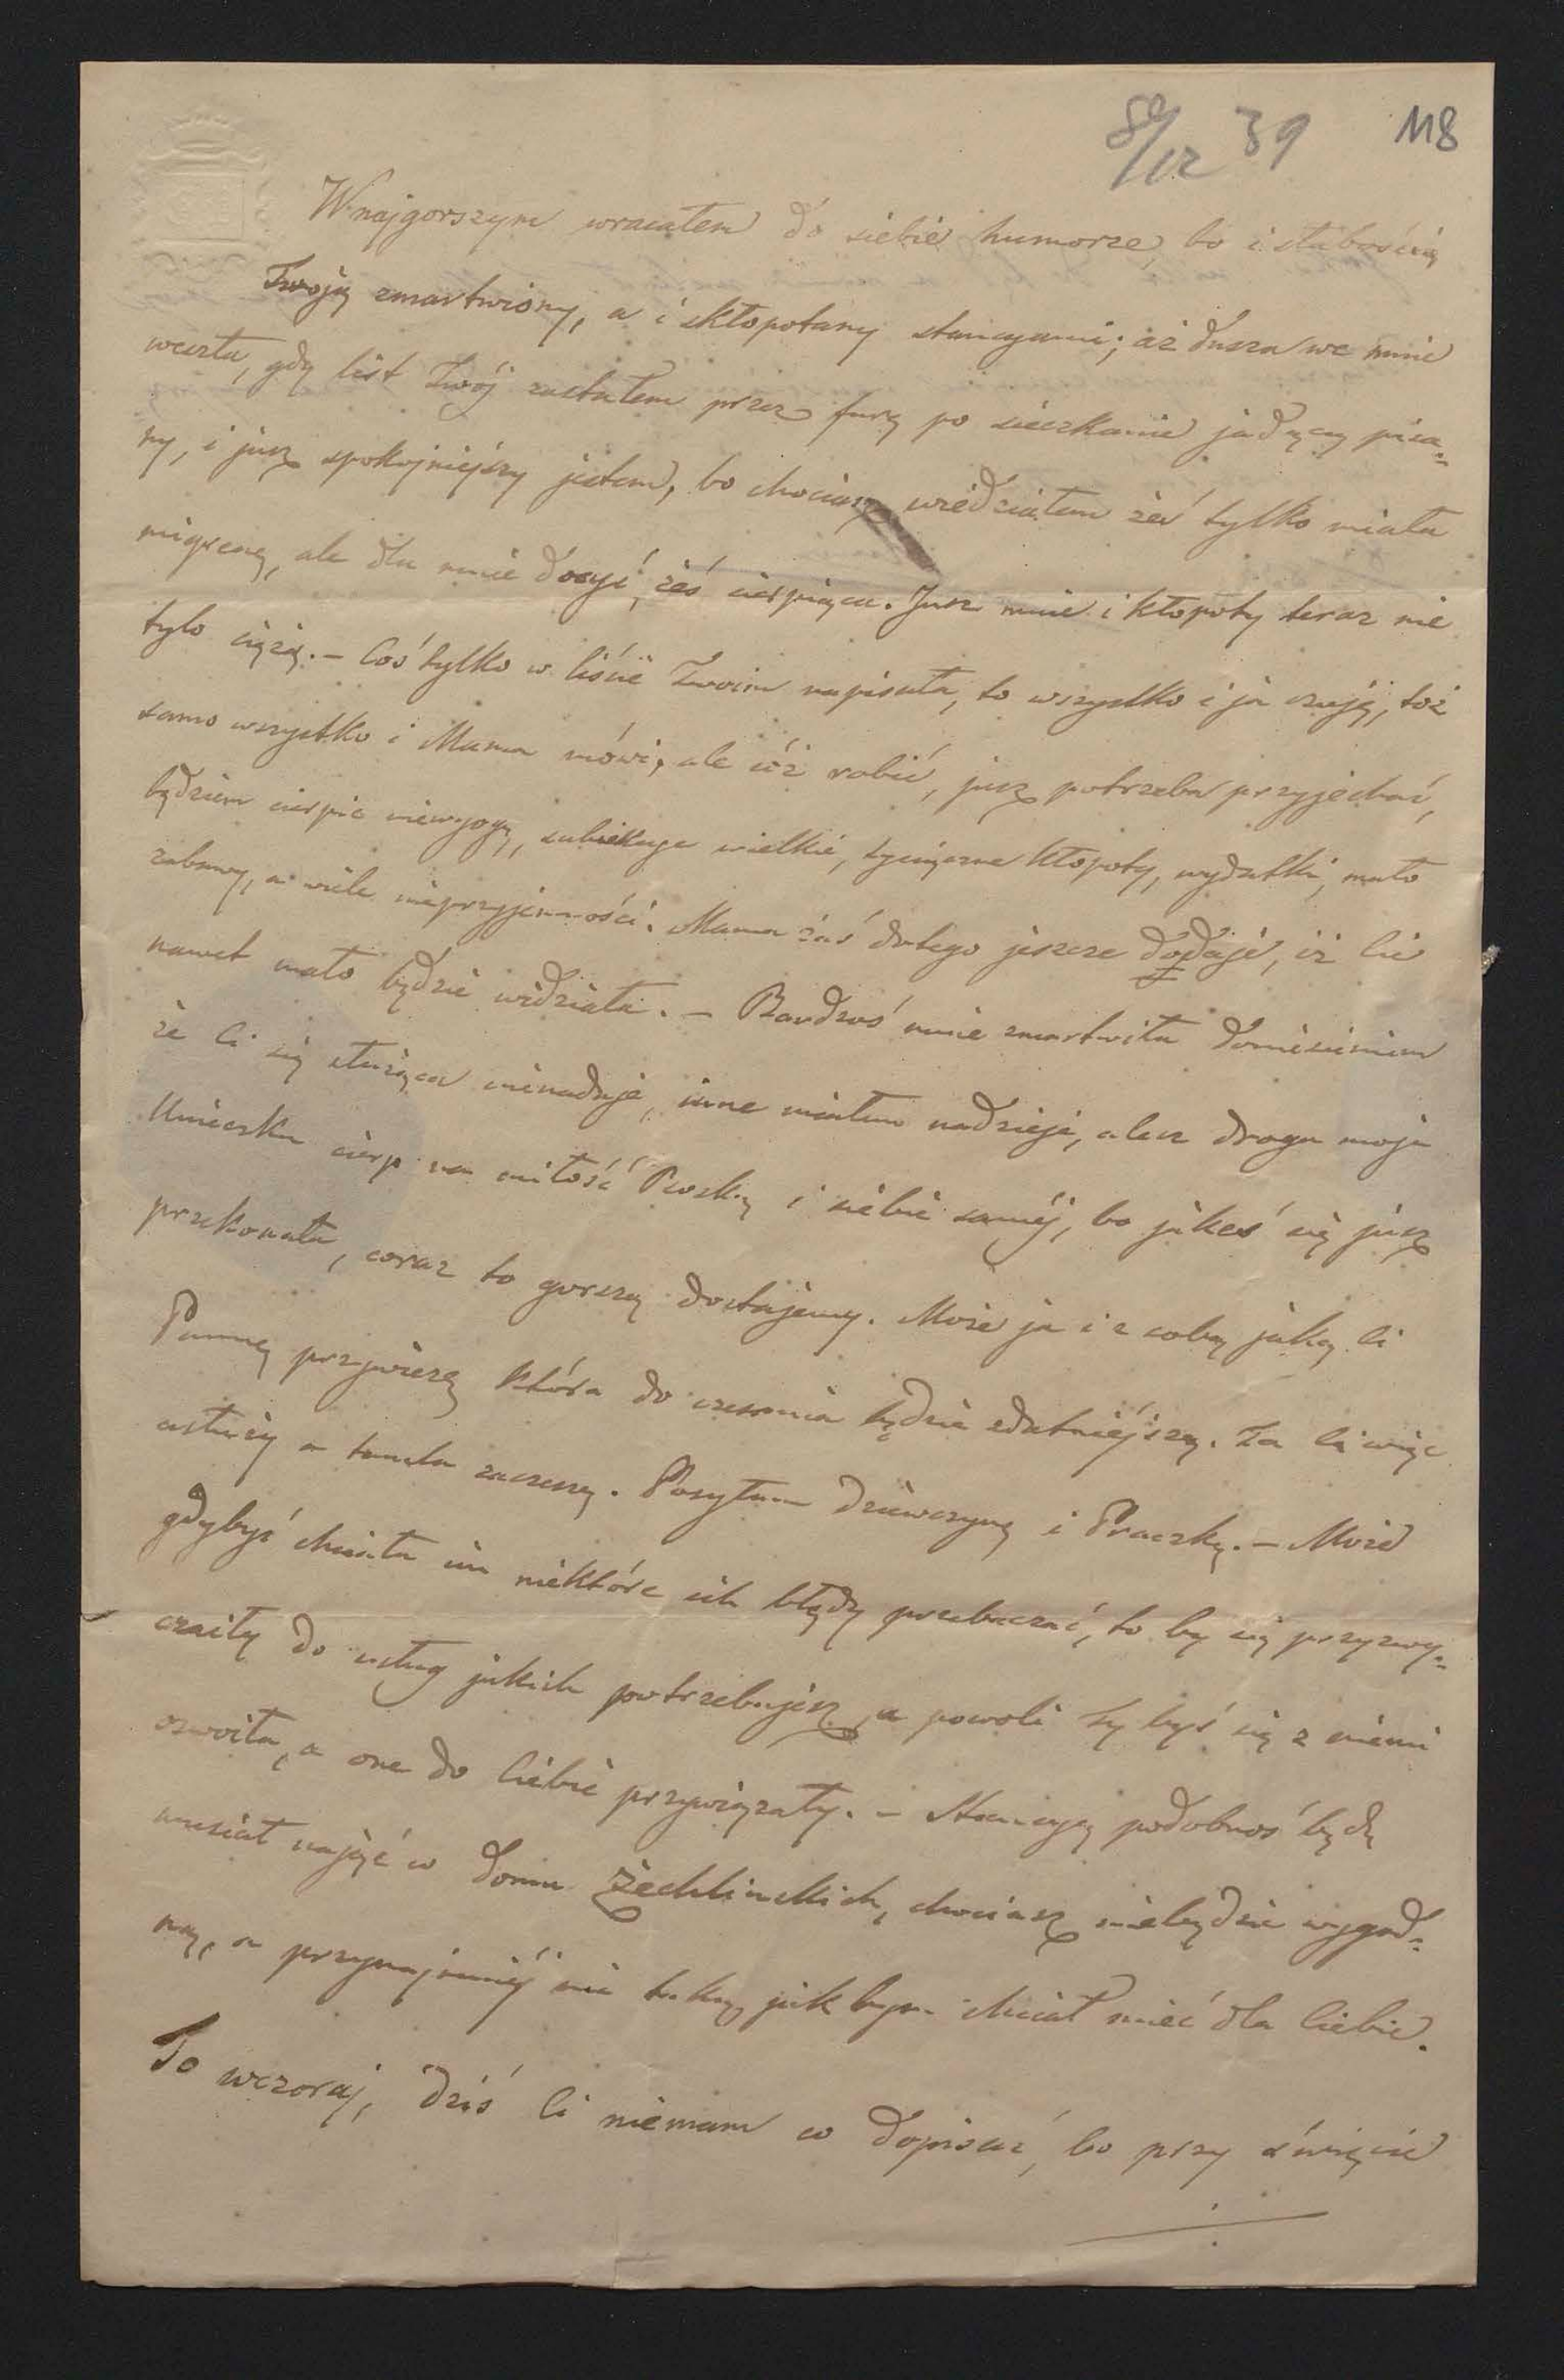 8/12 39 118
W najgorszym wracałem do siebie humorze, bo i słabością
Twoją zmartwiony, a i skłopotany stancyami; aż dusza we mnie
weszła, gdy list Twój zastałem przez furę po sieczkarnie jadącą pisa=
ny, i jusz spokojniejszy jestem, bo chociasz wiedziałem żeś tylko miała
migrenę, ale dla mnie dosyć, żeś cierpiąca. Jusz mnie i kłopoty teraz nie
tylo ciężą. – Coś tylko w liście Twoim napisała, to wszystko i ja czuję, toż
samo wszystko i Mama mówi, ale cóż robić, jusz potrzeba przyjechać,
będziem cierpić niewygogę, subiekuje wielkie, tysiączne kłopoty, wydatki, mało
zabawy, a wiele nieprzyjemności. Mama zaś dotego jeszcze dodaje, iż Cię
nawet mało będzie widziała. – Bardzoś mnie zmartwiła doniesieniem
że Ci się służąca nienadaje, inne miałem nadzieje, alesz droga moja
Unieczku cierp na miłość Boską i siebie saméj, bo jakeś się jusz
przekonała, coraz to gorszą dostajemy. Może ja i z sobą jaką Ci
Pannę przywiezę która do czesania będzie zdatniéjszą. Ta Ci więc
usłuży a tamta zaczesze. Posyłam dziewczynę i Praczkę. – Może
gdybyś chciała im niektóre ich błędy przebaczać, to by się przyzwy=
czaiły do usług jakich potrzebujesz, a powoli Ty byś się z niemi
oswoiła, a one do Ciebie przywiązały. – Stancyę podobnoś będę
musiał nająć w domu Żechlinskich, chociasz niebędzie wygod=
ną, a przynajmniéj nie taką jak bym chciał mieć dla Ciebie.
To wczoraj, dziś Ci niemam co dopisać, bo przy święcie